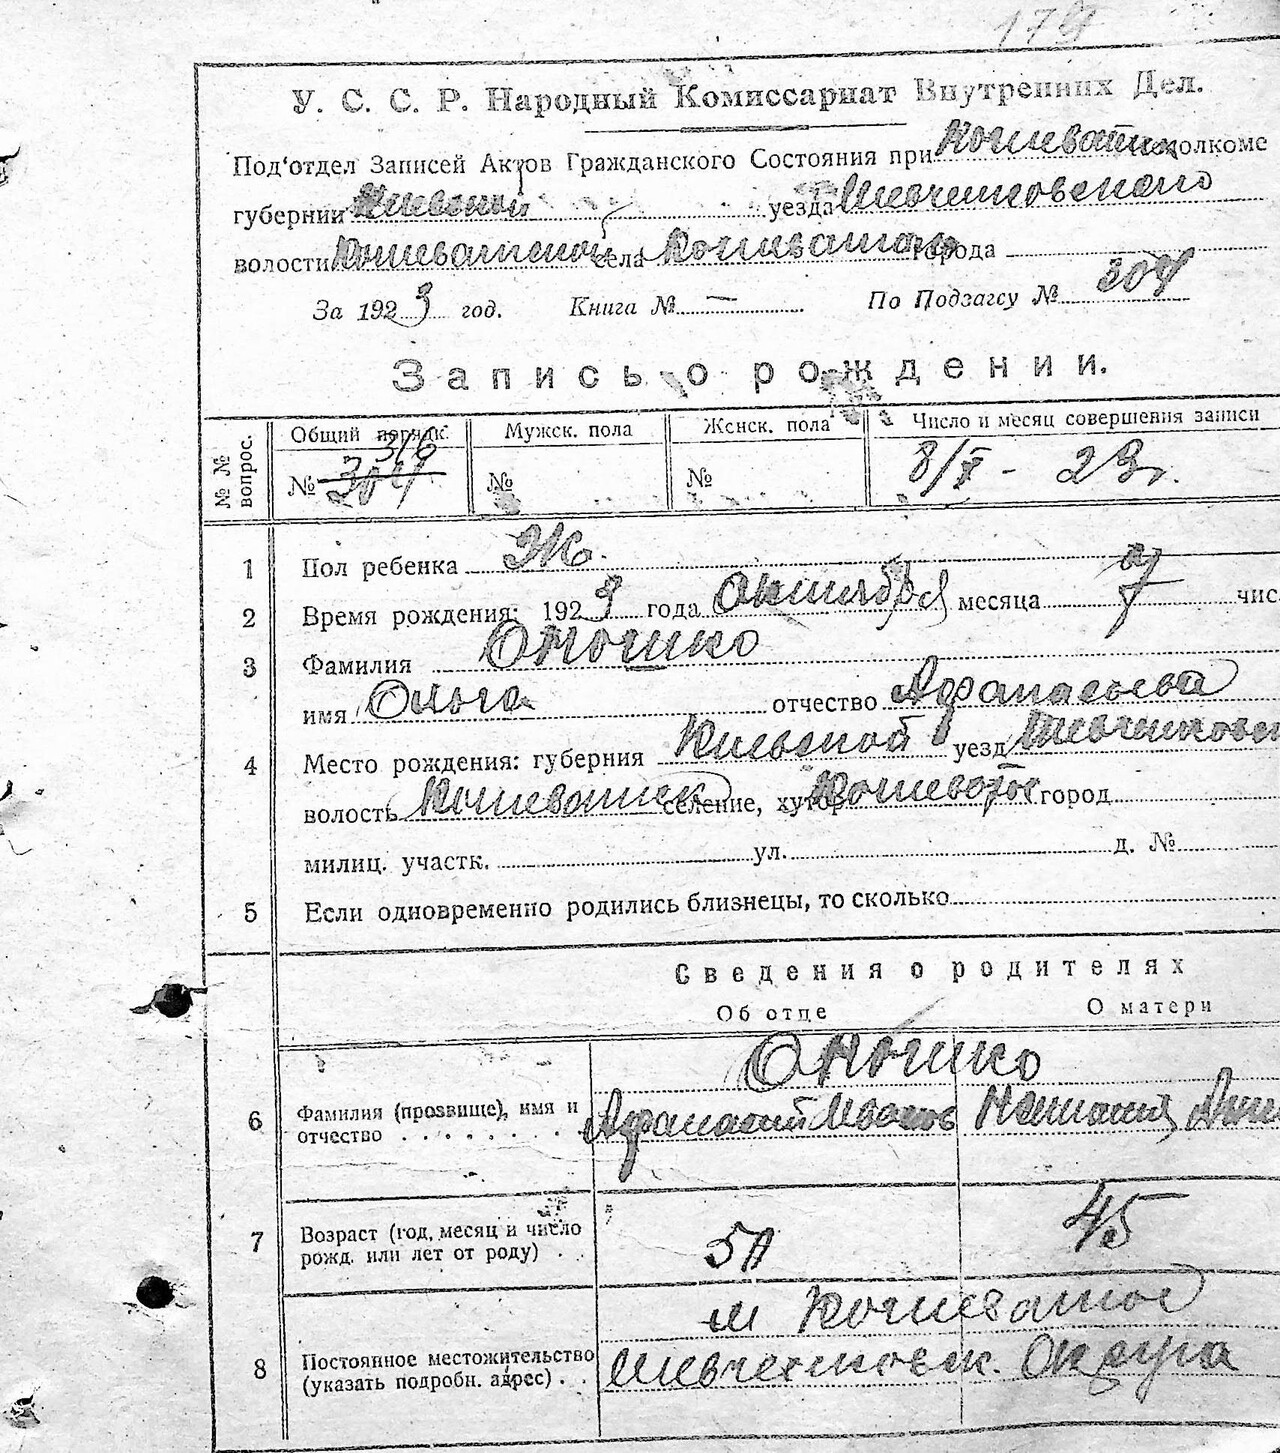 179
У. С. С. Р. Народный Комиссариат Внутренних Дел.
Под'отдел Записей Актов Гражданского Состояния при Кошеватск волкоме
губернии Киевской уезда Шевченковского
волости Кошеватской села Кошеватое города
За 1923 год. Книга № — По Подзагсу № 304
Запись о рождении.
№ № вопрос. Общий порядк. № 304 316 Мужск. пола № Женск. пола № Число и месяц совершения записи 8/X - 23 г.
1 Пол ребенка Ж.
2 Время рождения: 1923 года Октября месяца 7 чис
3 Фамилия Оношко
имя Ольга отчество Афанасьева
4 Место рождения: губерния Киевской уезд Шевченковск
волость Кошеватск селение, хутор Кошеватое город
милиц. участк. ул. д. №
5 Если одновременно родились близнецы, то сколько
Сведения о родителях
Об отце О матери
Оношко
6 Фамилия (прозвище), имя и отчество Афанасий Иванов
7 Возраст (год, месяц и число рожд. или лет от роду) 51 45
м Кошеватое
8 Постоянное местожительство (указать подробн. адрес) Шевченковск. Округа